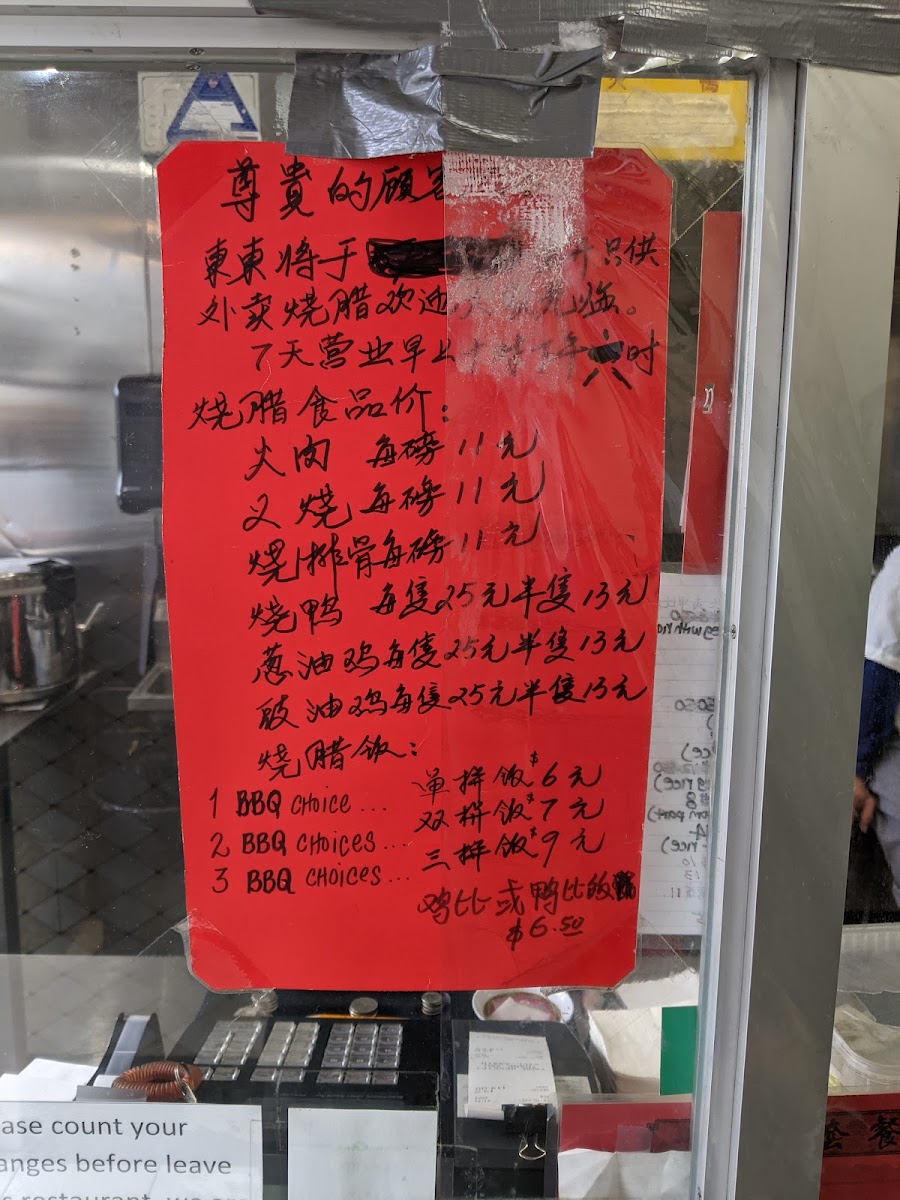 A
尊貴的顧客
東東将于 只供
外卖烧腊欢迎 光临。
7天营业早上十 下午六时
烧腊食品价:
火肉 每磅11元
叉烧每磅11元
烧排骨每磅11元
烧鸭 每隻25元半隻13元
葱油鸡每隻25元半隻13元
豉油鸡每隻25元半隻13元
烧腊饭:
1 BBQ CHOICE ... 单拼饭$6元
2 BBQ CHOICES ... 双拼饭$7元
3 BBQ CHOICES ... 三拼饭$9元
鸡比或鸭比的
$6.50
ase count your
anges before leave
restaurant
套餐